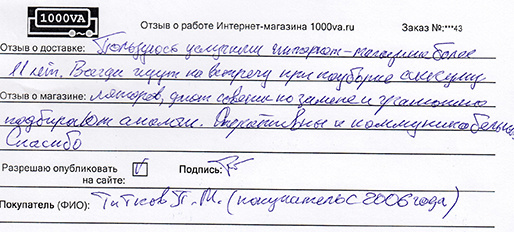 1000VA
Отзыв о работе Интернет-магазина 1000va.ru
Заказ №:***43
Отзыв о доставке: Пользуюсь услугами интернет-магазина более
11 лет. Всегда идут на встречу при подборе
Отзыв о магазине: дают советы по замене и установке
подбирают аналоги. Оперативны и коммуникабельны.
Спасибо
Разрешаю опубликовать
на сайте:
Подпись:
Покупатель (ФИО): Титков П.М. (покупатель с 2006 года)